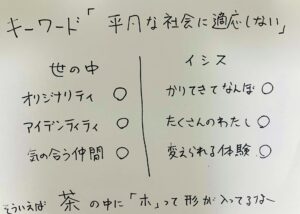 キーワード「平凡な社会に適応しない」
世の中
オリジナリティ ○
アイデンティティ ○
気の合う仲間 ○
イシス
かりてきてなんぼ ○
たくさんのわたし ○
変えられる体験 ○
そういえば 茶の中に「ホ」って形が入ってるなー